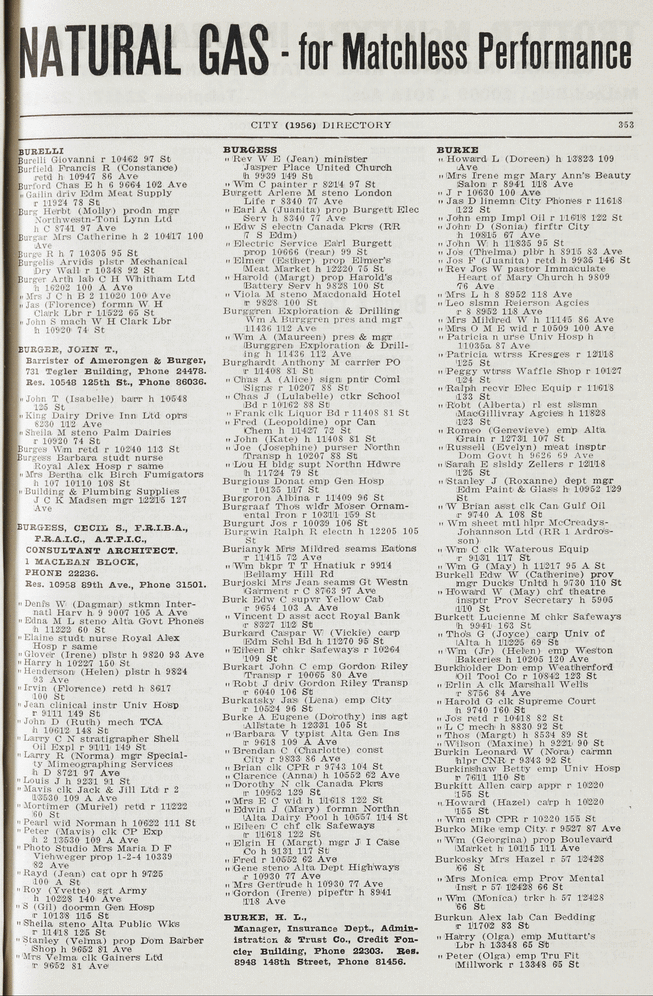 NATURAL GAS - for Matchless Performance
CITY (1956) DIRECTORY 353
BURELLI
Burelli Giovanni r 10462 97 St
Burfield Francis R (Constance)
retd h 10947 86 Ave
Burford Chas E h 6 9664 102 Ave
„ Gailin driv Edm Meat Supply
r 11924 78 St
Burg Herbt (Molly) prodn mgr
Northwestn-Toni Lynn Ltd
h C 8741 97 Ave
Burgar Mrs Catherine h 2 10417 100
Ave
Burge R h 7 10305 95 St
Burgelis Arvids plstr Mechanical
Dry Wall r 10348 92 St
Burger Arth lab C H Whitham Ltd
h 16202 100 A Ave
„ Mrs J C h B 2 11020 100 Ave
„ Jas (Florence) formn W H
Clark Lbr r 11522 65 St
„ John S mach W H Clark Lbr
h 10920 74 St
BURGER, JOHN T.,
Barrister of Amerongen & Burger,
731 Tegler Building, Phone 24478.
Res. 10548 125th St., Phone 86036.
„ John T (Isabelle) barr h 10548
125 St
„ King Dairy Drive Inn Ltd oprs
8230 112 Ave
„ Sheila M steno Palm Dairies
r 10920 74 St
Burges Wm retd r 10240 113 St
Burgess Barbara studt nurse
Royal Alex Hosp r same
„ Mrs Bertha clk Birch Fumigators
h 107 10110 108 St
„ Building & Plumbing Supplies
J C K Madsen mgr 12215 127
Ave
BURGESS, CECIL S., F.R.I.B.A.,
F.R.A.I.C., A.T.P.I.C.,
CONSULTANT ARCHITECT.
1 MACLEAN BLOCK,
PHONE 22236.
Res. 10958 89th Ave., Phone 31501.
„ Denis W (Dagmar) stkmn Inter-
natl Harv h 9 9007 105 A Ave
„ Edna M L steno Alta Govt Phones
h 11222 60 St
„ Elaine studt nurse Royal Alex
Hosp r same
„ Glover (Irene) plstr h 9820 93 Ave
„ Harry h 10227 150 St
„ Henderson (Helen) plstr h 9824
93 Ave
„ Irvin (Florence) retd h 8617
100 St
„ Jean clinical instr Univ Hosp
r 9111 149 St
„ John D (Ruth) mech TCA
h 10612 148 St
„ Larry C N stratigrapher Shell
Oil Expl r 9111 149 St
„ Larry R (Norma) mgr Special-
ty Mimeographing Services
h D 8721 97 Ave
„ Louis J h 9231 91 St
„ Mavis clk Jack & Jill Ltd r 2
13530 109 A Ave
„ Mortimer (Muriel) retd r 11222
60 St
„ Pearl wid Norman h 10622 111 St
„ Peter (Mavis) clk CP Exp
h 2 13530 109 A Ave
„ Photo Studio Mrs Maria D F
Viehweger prop 1-2-4 10339
82 Ave
„ Rayd (Jean) cat opr h 9725
100 A St
„ Roy (Yvette) sgt Army
h 10228 140 Ave
„ S (Gil) doormn Gen Hosp
r 10138 115 St
„ Sheila steno Alta Public Wks
r 11418 125 St
„ Stanley (Velma) prop Dom Barber
Shop h 9652 81 Ave
„ Mrs Velma clk Gainers Ltd
r 9652 81 Ave
BURGESS
„ Rev W E (Jean) minister
Jasper Place United Church
h 9939 149 St
„ Wm C painter r 8214 97 St
Burgett Arlene M steno London
Life r 8340 77 Ave
„ Earl A (Juanita) prop Burgett Elec
Serv h 8340 77 Ave
„ Edw S electn Canada Pkrs (RR
7 S Edm)
„ Electric Service Earl Burgett
prop 10666 (rear) 99 St
„ Elmer (Esther) prop Elmer's
Meat Market h 12220 75 St
„ Harold (Margt) prop Harold's
Battery Serv h 9828 100 St
„ Viola M steno Macdonald Hotel
r 9828 100 St
Burggren Exploration & Drilling
Wm A Burggren pres and mgr
11436 112 Ave
„ Wm A (Maureen) pres & mgr
Burggren Exploration & Drill-
ing h 11436 112 Ave
Burghardt Anthony M carrier PO
r 11408 81 St
„ Chas A (Alice) sign pntr Coml
Signs r 10207 88 St
„ Chas J (Lulabelle) ctkr School
Bd r 10162 88 St
„ Frank clk Liquor Bd r 11408 81 St
„ Fred (Leopoldine) opr Can
Chem h 11427 72 St
„ John (Kate) h 11408 81 St
„ Joe (Josephine) purser Northn
Transp h 10207 88 St
„ Lou H bldg supt Northn Hdwre
h 11724 79 St
Burgious Donat emp Gen Hosp
r 10135 117 St
Burgoron Albina r 11409 96 St
Burgraaf Thos widr Moser Ornam-
ental Iron r 10311 159 St
Burgurt Jos r 10039 106 St
Burgwin Ralph R electn h 12205 105
St
Burianyk Mrs Mildred seams Eatons
r 11415 72 Ave
„ Wm bkpr T T Hnatiuk r 9914
Bellamy Hill Rd
Burjoski Mrs Jean seams Gt Westn
Garment r C 8763 97 Ave
Burk Edw C supvr Yellow Cab
r 9654 103 A Ave
„ Vincent D asst acct Royal Bank
r 8327 112 St
Burkard Caspar W (Vickie) carp
Edm Schl Bd h 11270 95 St
„ Eileen F chkr Safeways r 10264
109 St
Burkart John C emp Gordon Riley
Transp r 10065 80 Ave
„ Robt J driv Gordon Riley Transp
r 6040 106 St
Burkatsky Jas (Lena) emp City
r 10524 96 St
Burke A Eugene (Dorothy) ins agt
Allstate h 12331 105 St
„ Barbara V typist Alta Gen Ins
r 9618 109 A Ave
„ Brendan C (Charlotte) const
City r 9833 86 Ave
„ Brian clk CPR r 9743 104 St
„ Clarence (Anna) h 10552 62 Ave
„ Dorothy N clk Canada Pkrs
r 10952 129 St
„ Mrs E C wid h 11618 122 St
„ Edwin J (Mary) formn Northn
Alta Dairy Pool h 10557 114 St
„ Eileen C chf clk Safeways
r 11618 122 St
„ Elgin H (Margt) mgr J I Case
Co h 9131 117 St
„ Fred r 10552 62 Ave
„ Gene steno Alta Dept Highways
r 10930 77 Ave
„ Mrs Gertrude h 10930 77 Ave
„ Gordon (Irene) pipeftr h 8941
118 Ave
BURKE, H. L.,
Manager, Insurance Dept., Admin-
istration & Trust Co., Credit Fon-
cier Building, Phone 22303. Res.
8948 148th Street, Phone 81456.
BURKE
„ Howard L (Doreen) h 13823 109
Ave
„ Mrs Irene mgr Mary Ann's Beauty
Salon r 8941 118 Ave
„ J r 10630 100 Ave
„ Jas D linemn City Phones r 11618
122 St
„ John emp Impl Oil r 11618 122 St
„ John D (Sonia) firftr City
h 10815 67 Ave
„ John W h 11835 95 St
„ Jos (Thelma) plbr h 8915 83 Ave
„ Jos P (Juanita) retd h 9935 146 St
„ Rev Jos W pastor Immaculate
Heart of Mary Church h 9809
76 Ave
„ Mrs L h 8 8952 118 Ave
„ Leo slsmn Reierson Agcies
r 8 8952 118 Ave
„ Mrs Mildred W h 11145 86 Ave
„ Mrs O M E wid r 10509 100 Ave
„ Patricia n urse Univ Hosp h
11035a 87 Ave
„ Patricia wtrss Kresges r 12118
125 St
„ Peggy wtrss Waffle Shop r 10127
124 St
„ Ralph recvr Elec Equip r 11618
133 St
„ Robt (Alberta) rl est slsmn
MacGillivray Agcies h 11828
123 St
„ Romeo (Genevieve) emp Alta
Grain r 12731 107 St
„ Russell (Evelyn) meat insptr
Dom Govt h 9626 69 Ave
„ Sarah E slsldy Zellers r 12118
125 St
„ Stanley J (Roxanne) dept mgr
Edm Paint & Glass h 10952 129
St
„ W Brian asst clk Can Gulf Oil
r 9740 A 108 St
„ Wm sheet mtl hlpr McCreadys-
Johannson Ltd (RR 1 Ardros-
son)
„ Wm C clk Waterous Equip
r 9131 117 St
„ Wm G (May) h 11217 95 A St
Burkell Edw W (Catherine) prov
mgr Ducks Unltd h 9730 110 St
„ Howard W (May) chf theatre
insptr Prov Secretary h 5905
110 St
Burkett Lucienne M chkr Safeways
h 9941 163 St
„ Thos G (Joyce) carp Univ of
Alta h 11225 69 St
„ Wm (Jr) (Helen) emp Weston
Bakeries h 10205 120 Ave
Burkholder Don emp Weatherford
Oil Tool Co r 10842 123 St
„ Erlin A clk Marshall Wells
r 8756 84 Ave
„ Harold G clk Supreme Court
h 9740 160 St
„ Jos retd r 10418 82 St
„ L C mech h 8830 92 St
„ Thos (Margt) h 8534 89 St
„ Wilson (Maxine) h 9221 90 St
Burkin Leonard W (Nora) carmn
hlpr CNR r 9343 92 St
Burkinshaw Betty emp Univ Hosp
r 7611 110 St
Burkitt Allen carp appr r 10220
155 St
„ Howard (Hazel) carp h 10220
155 St
„ Wm emp CPR r 10220 155 St
Burko Mike emp City r 9527 87 Ave
„ Wm (Georgina) prop Boulevard
Market h 10115 111 Ave
Burkosky Mrs Hazel r 57 12428
66 St
„ Mrs Monica emp Prov Mental
Inst r 57 12428 66 St
„ Wm (Monica) trkr h 57 12428
66 St
Burkun Alex lab Can Bedding
r 11702 83 St
„ Harry (Olga) emp Muttart's
Lbr h 13348 65 St
„ Peter (Olga) emp Tru Fit
Millwork r 13348 65 St